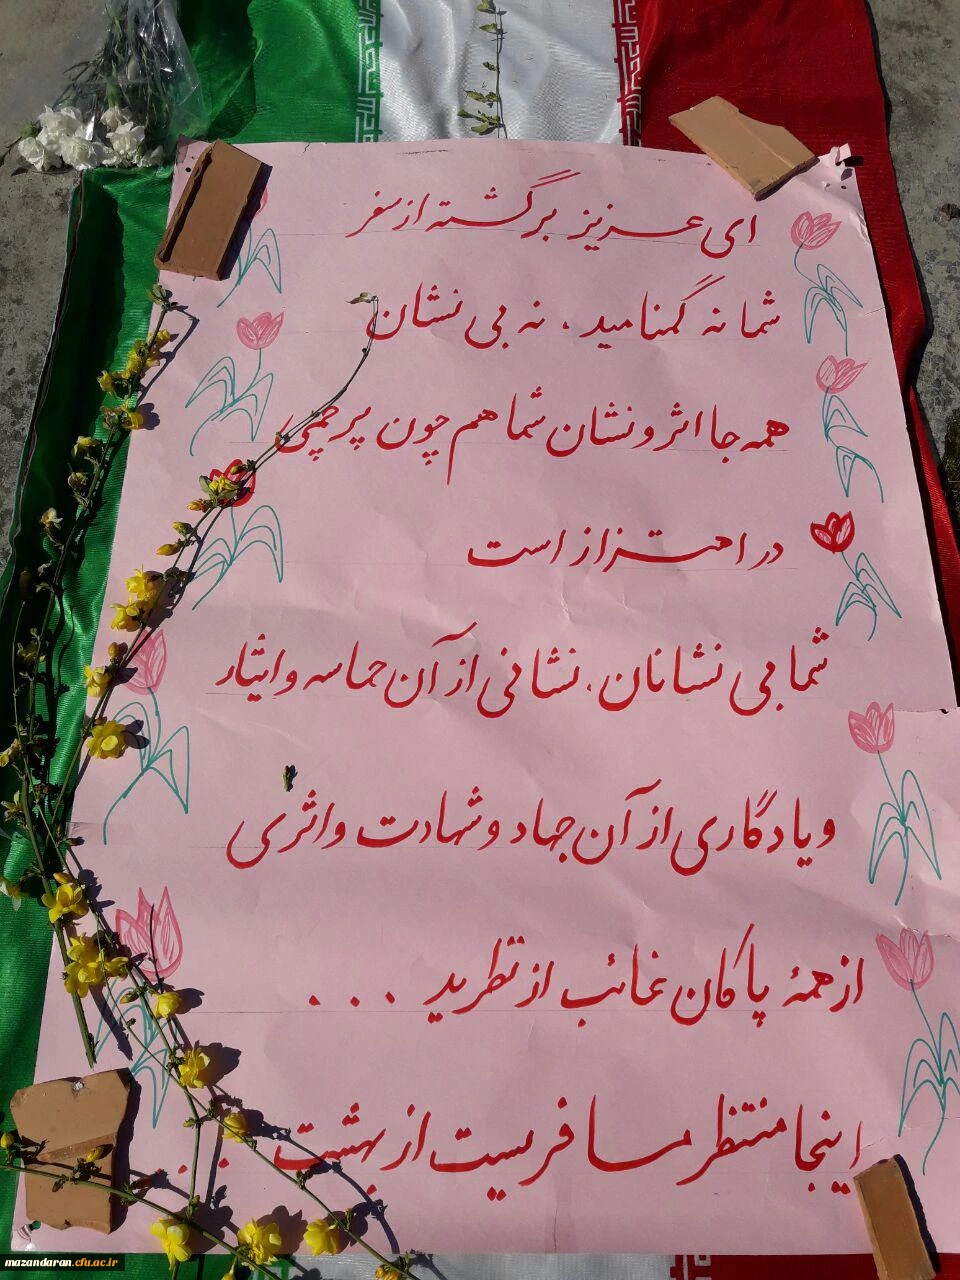 ای عزیز برگشته از سفر
شما نه گمنامید، نه بی نشان
همه جا اثر و نشان شما هم چون پرچمی
در اهتزاز است
شما بی نشانان، نشانی از آن حماسه و ایثار
و یادگاری از آن جهاد و شهادت و اثری
از همهٔ پاکان غائب از نظرید ...
اینجا منتظر مسافریست از بهشت ...
mazandaran.cfu.ac.ir